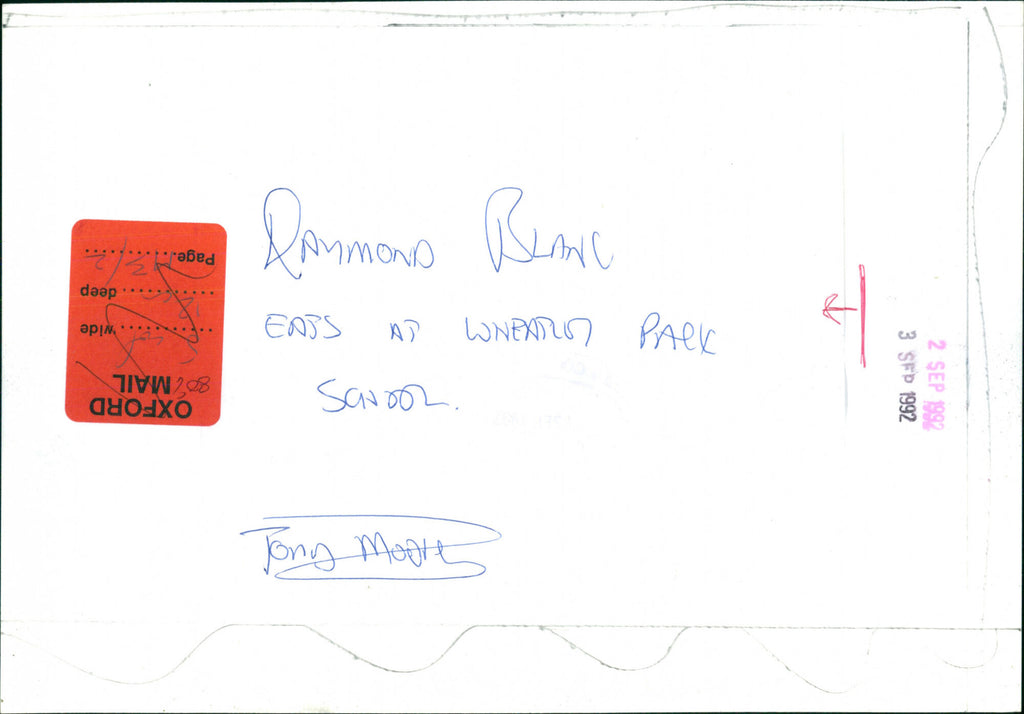 RAYMOND BLANC
EATS AT WHEATLEY PARK
SCHOOL.
Tony Moore
OXFORD
MAIL
wide
deep
Page
2 SEP 1992
3 SEP 1992